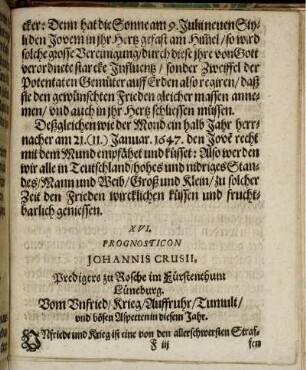 cker: Denn hat die Sonne am 9. Julii neuen Sty-
li den Jovem in jhr Hertz gefast am Him̃el / so wird
solche grosse Vereinigung / durch diese jhre von Gott
verordnete starcke Influentz / sonder Zweiffel der
Potentaten Gemüter auff Erden also regiren / daß
sie den gewünschten Frieden gleicher massen anne-
men / vnd auch in jhr Hertz schliessen müssen.
Deßgleichen wie der Mond ein halb Jahr her-
nacher am 21. (11.) Januar. 1647. den Jovẽ recht
mit dem Mund empfähet vnd küsset: Also werden
wir alle in Teutschland / hohes vnd nidriges Stan-
des / Mann vnd Weib / Groß vnd Klein / zu solcher
Zeit den Frieden wircklichen küssen vnd frucht-
barlich geniessen.
XVI.
PROGNOSTICON
JOHANNIS CRUSII,
Predigers zu Rosche im Fürstenthum
Lüneburg.
Vom Vnfried / Krieg / Auffruhr / Tumult /
vnd bösen Aspecten in diesem Jahr.
VNfriede vnd Krieg ist eine von den allerschwersten Straf-
F iij
fen